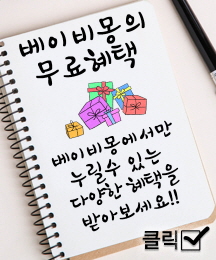 베이비몽의
무료혜택
베이비몽에서만
누릴수 있는
다양한 혜택을
받아보세요!!
클릭